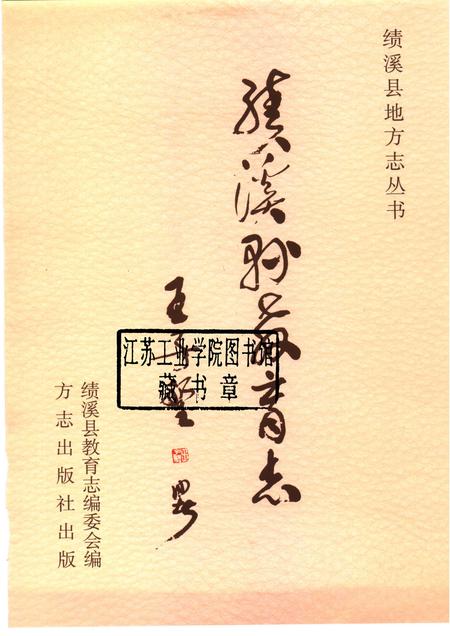 绩溪县地方志丛书
绩溪县教育志
王
江苏工业学院图书馆
藏书章
绩溪县教育志编委会编
方志出版社出版